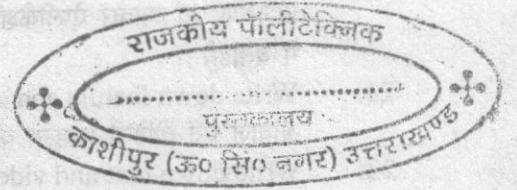 राजकीय पॉलीटेक्निक
पुस्तकालय
काशीपुर (ऊ० सि० नगर) उत्तराखण्ड